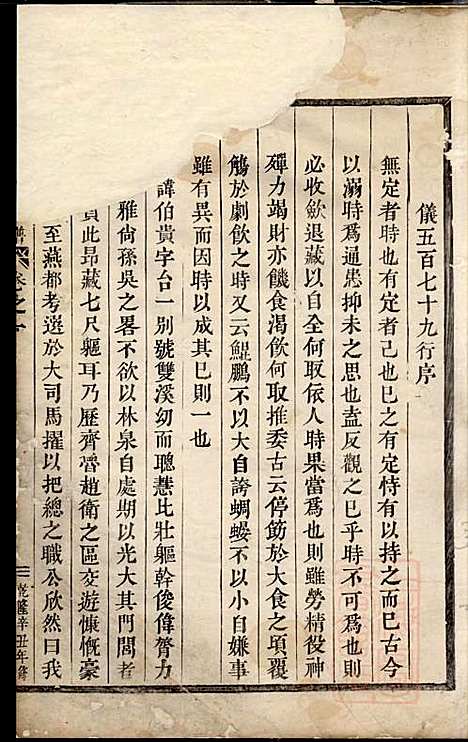 儀五百七十九行序
無定者時也有定者己也巳之有定恃有以持之而巳古今
以溺時爲通患抑未之思也盍反觀之巳乎時可爲也則
必收歛退藏以自全何取依人時果當爲也則雖勞精役神
殫力竭財亦饑食渴飲何取推委古云停筯於大食之項覆
觴於劇飲之時又云鯤鵬不以大自誇蜩螻不以小自嫌事
雖有異而因時以成其巳則一也
諱伯貴字台一別號雙溪幼而聰慧比壯軀幹俊偉膂力
雅尙孫吳之畧不欲以林泉自處期以光大其門閭者
負此昂藏七尺軀耳乃歷齊魯趙衛之區交遊慷慨豪
至燕都考選於大司馬擢以把總之職公欣然曰我
卷之十
乾隆辛丑年脩